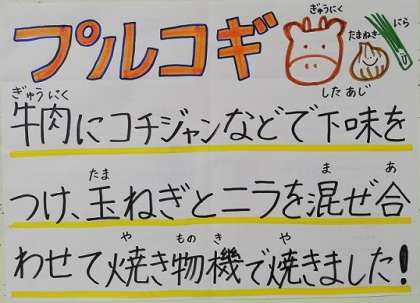 プルコギ
ぎゅうにく
たまねぎ
にら
ぎゅうにく したあじ
牛肉にコチジャンなどで下味を
たま ま あ
つけ、玉ねぎとニラを混ぜ合
や もの き や
わせて焼き物機で焼きました!